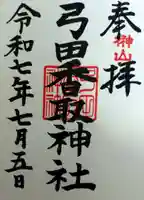 奉拝
榊山
弓田香取神社
令和七年七月五日